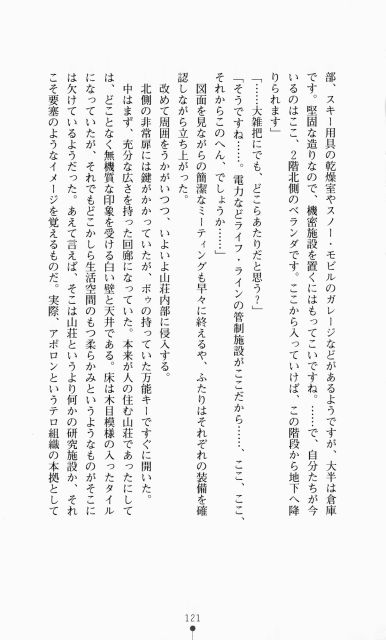 部、スキー用具の乾燥室やスノー・モビルのガレージなどがあるようですが、大半は倉庫
です。堅固な造りなので、機密施設を置くにはもってこいですね。……で、自分たちが今
いるのはここ、２階北側のベランダです。ここから入っていけば、この階段から地下へ降
りられます」
「……大雑把にでも、どこらあたりだと思う？」
「そうですね……。電力などライフ・ラインの管制施設がここだから……、ここ、ここ、
それからこのへん、でしょうか……」
図面を見ながらの簡潔なミーティングも早々に終えるや、ふたりはそれぞれの装備を確
認しながら立ち上がった。
改めて周囲をうかがいつつ、いよいよ山荘内部に侵入する。
北側の非常扉には鍵がかかっていたが、ボゥの持っていた万能キーですぐに開いた。
中はまず、充分な広さを持った回廊になっていた。本来が人の住む山荘であったにして
は、どことなく無機質な印象を受ける白い壁と天井である。床は木目模様の入ったタイル
になっていたが、それでもどこかしら生活空間のもつ柔らかみというようなものがそこに
は欠けているようだった。あえて言えば、そこは山荘というより何かの研究施設か、それ
こそ要塞のようなイメージを覚えるものだ。実際、アポロンというテロ組織の本拠として
121